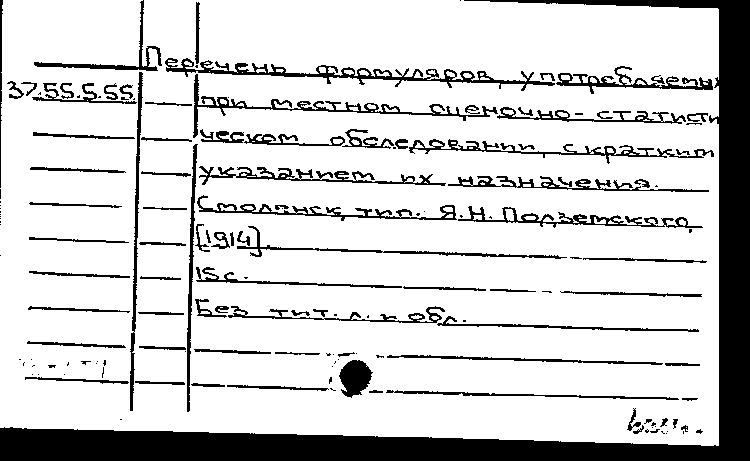 Перечень формуляров, употребляемых
37.55.5.55
при местном оценочно-статисти
ческом обследовании, с кратким
указанием их назначения.
Смоленск, тип. Я.Н. Подземского,
[1914].
15 с.
Без тит. л. и обл.